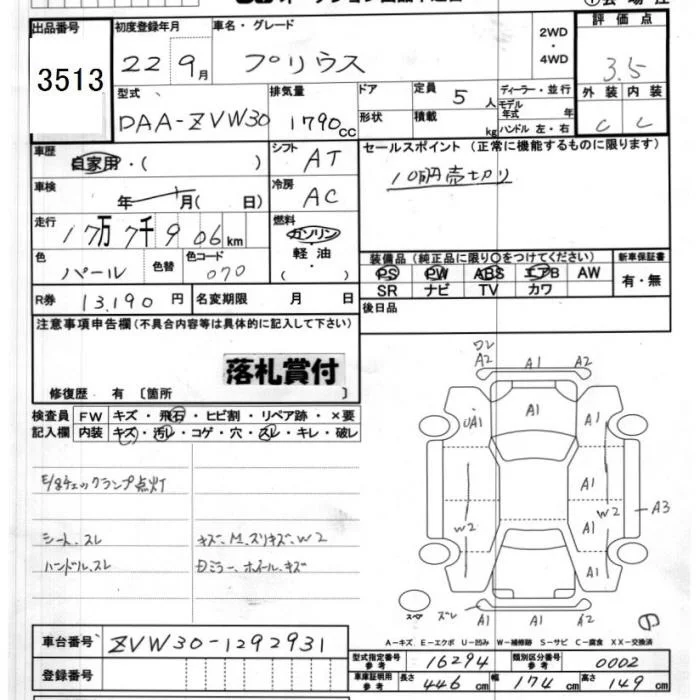 出品番号
3513
初度登録年月
22 9月
車名・グレード
プリウス
2WD
・
4WD
評価点
3.5
外装 内装
C C
型式
DAA-ZVW30
排気量
1790cc
ドア
形状
定員
5人
積載
kg
ディーラー・並行
モデル年式 年
ハンドル 左・右
車歴
自家用・( )
シフト
AT
車検
年 月( 日)
冷房
AC
走行
17万7千906km
燃料
ガソリン
・
軽油
・
( )
色
パール
色替
色コード
070
R券
13,190円
名変期限 月 日
セールスポイント(正常に機能するものに限ります)
10万円売切り
装備品(純正品に限り○をつけてください)
PS PW ABS エアB AW
SR ナビ TV カワ
新車保証書
有・無
後日品
注意事項申告欄(不具合内容等は具体的に記入して下さい)
落札賞付
修復歴 有〔箇所 〕
検査員記入欄
FW キズ・飛石・ヒビ割・リペア跡・×要
内装 キズ・汚レ・コゲ・穴・スレ・キレ・破レ
E/gチェックランプ点灯
シート.スレ
ハンドル.スレ
キズ.M.スリキズ.W2
Dミラー.ホイール.キズ
ワレ
A2 A1 A2
UA1 A1 A1
A1 A1
W2 W2 A3
A1
A1 A1
スペア
ズレ A1 A1 A2
A-キズ E-エクボ U-凹み W-補修跡 S-サビ C-腐食 XX-交換済
車台番号
ZVW30-1292931
登録番号
型式指定番号
参考
16294
類別区分番号
参考
0002
車庫証明用
参考
長さ 446cm 幅 174cm 高さ 149cm